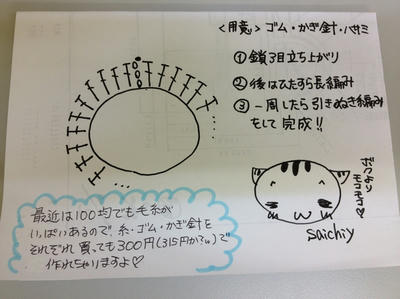 〈用意〉ゴム・かぎ針・ハサミ
①鎖3目立ち上がり
②後はひたすら長編み
③一周したら引きぬき編み
をして完成!!
saichiy
最近は100均でも毛糸が
いっぱいあるので、糸・ゴム・かぎ針を
それぞれ買っても300円(315円か?w)で
作れちゃりますよ♡